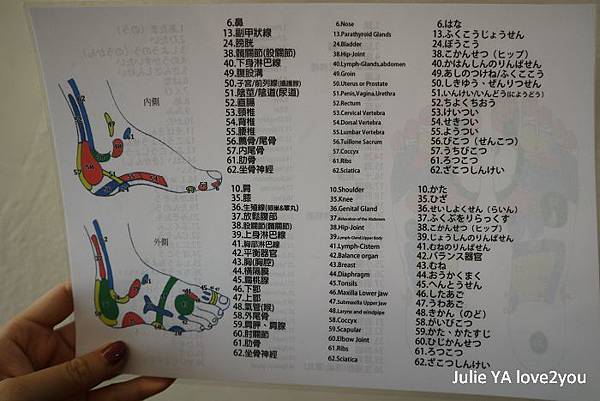 6.鼻
13.副甲狀線
24.膀胱
38.髖關節(股關節)
40.下身淋巴線
49.腹股溝
50.子宮/前列線(攝護腺)
51.陰莖/陰道(尿道)
52.直腸
53.頸椎
54.背椎
55.腰椎
56.薦骨/尾骨
57.内尾骨
61.肋骨
62.坐骨神經
6.Nose
13.Parathyroid Glands
24.Bladder
38.Hip-Joint
40.Lymph-Glands,abdomen
49.Groin
50.Uterus or Prostate
51.Penis,Vagina,Urethra
52.Rectum
53.Cervical Vertebra
54.Dorsal Vertebra
55.Lumbar Vertebra
56.Tuillone Sacrum
57.Coccyx
61.Ribs
62.Sciatica
6.はな
13.ふくこうじょうせん
24.ぼうこう
38.こかんせつ（ヒップ）
40.かはんしんのりんぱせん
49.あしのつけね/ふくここう
50.しきゆう・ぜんりつせん
51.いんけい/いんどう(にようどう)
52.ちよくちおう
53.けいつい
54.せきつい
55.ようつい
56.びこつ（せんこつ）
57.うちびこつ
61.ろつこつ
62.ざこつしんけい
内側
10.肩
35.膝
36.生殖線(卵巢&睪丸)
37.放鬆腹部
38.股關節(髖關節)
39.上身淋巴線
41.胸部淋巴線
42.平衡器官
43.胸(胸腔)
44.橫隔膜
45.扁桃線
46.下鄂
47.上鄂
48.氣管(喉)
58.外尾骨
59.肩胛、肩線
60.肘關節
61.肋骨
62.坐骨神經
10.Shoulder
35.Knee
36.Genital Gland
37.Relaxation of the Abdomen
38.Hip-Joint
39.Lymph-Gland,Upper Body
41.Lymph-Cistern
42.Balance organ
43.Breast
44.Diaphragm
45.Tonsils
46.Maxilla Lower jaw
47.Submaxilla Upper jaw
48.Larynx and windpipe
58.Coccyx
59.Scapular
60.Elbow Joint
61.Ribs
62.Sciatica
10.かた
35.ひざ
36.せいしよくせん（らいん）
37.ふくぶをりらっくす
38.こかんせつ（ヒップ）
39.じょうしんのりんぱせん
41.むねのりんぱせん
42.バランス器官
43.むね
44.おうかくまく
45.へんとうせん
46.したあご
47.うわあご
48.きかん（のど）
58.がいびこつ
59.かた・かたすじ
60.ひじかんせつ
61.ろつこつ
62.ざこつしんけい
外側
Julie YA love2you